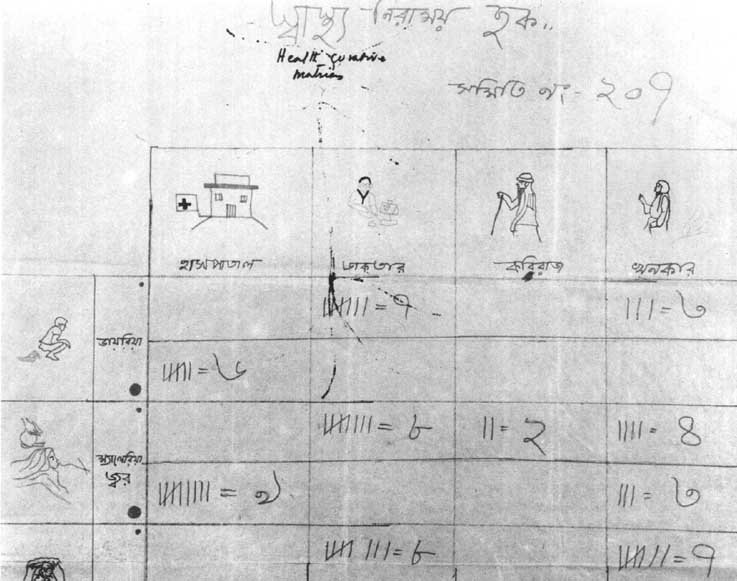 স্বাস্থ্য নিরাময় ছক..
Health curative
matrix
সমিতি নং - ২০৭
হাসপাতাল ডাক্তার কবিরাজ
= ৭ = ৩
ডায়রিয়া
= ৬
= ৮ = ২ = ৪
ম্যালেরিয়া
জ্বর
= ৯ = ৩
= ৮ = ৭